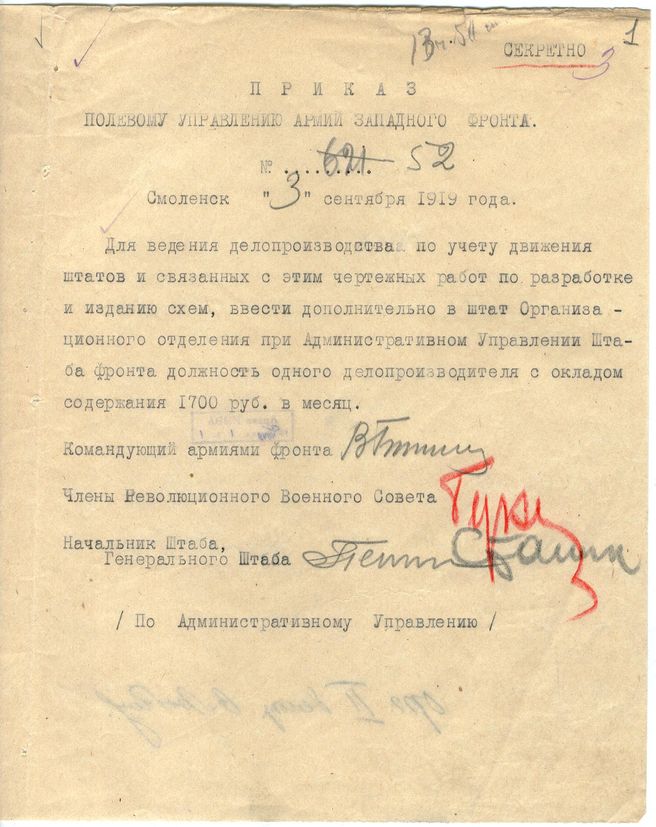 1
СЕКРЕТНО
3
ПРИКАЗ
ПОЛЕВОМУ УПРАВЛЕНИЮ АРМИЙ ЗАПАДНОГО ФРОНТА.
№ .......... 621 52
Смоленск "3" сентября 1919 года.
Для ведения делопроизводства по учету движения
штатов и связанных с этим чертежных работ по разработке
и изданию схем, ввести дополнительно в штат Организа -
ционного отделения при Административном Управлении Шта-
ба фронта должность одного делопроизводителя с окладом
содержания 1700 руб. в месяц.
Командующий армиями фронта
Члены Революционного Военного Совета
Начальник Штаба,
Генерального Штаба
Сталин
/ По Административному Управлению /